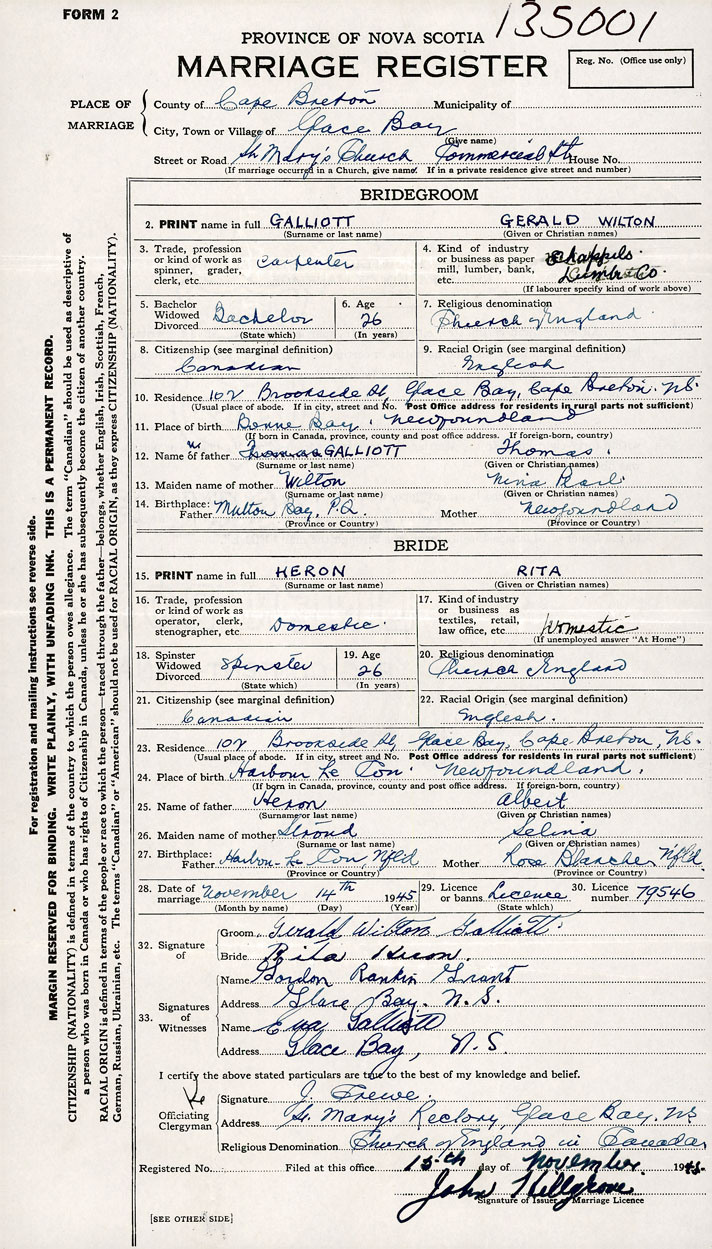 FORM 2
135001
PROVINCE OF NOVA SCOTIA
MARRIAGE REGISTER
Reg. No. (Office use only)
PLACE OF MARRIAGE
County of Cape Breton Municipality of
City, Town or Village of Glace Bay
(Give name)
Street or Road St Mary's Church Commercial St House No.
(If marriage occurred in a Church, give name. If in a private residence give street and number)
BRIDEGROOM
2. PRINT name in full GALLIOTT GERALD WILTON
(Surname or last name) (Given or Christian names)
3. Trade, profession or kind of work as spinner, grader, clerk, etc. Carpenter
4. Kind of industry or business as paper mill, lumber, bank, etc. Chappils Lumb Co.
(If labourer specify kind of work above)
5. Bachelor Widowed Divorced Bachelor
(State which)
6. Age 26
(In years)
7. Religious denomination
Church of England
8. Citizenship (see marginal definition)
Canadian
9. Racial Origin (see marginal definition)
English
10. Residence 102 Brookside St, Glace Bay, Cape Breton. N.S.
(Usual place of abode. If in city, street and No. Post Office address for residents in rural parts not sufficient)
11. Place of birth Bonne Bay, Newfoundland
(If born in Canada, province, county and post office address. If foreign-born, country)
12. Name of father Thomas GALLIOTT Thomas.
(Surname or last name) (Given or Christian names)
13. Maiden name of mother Wilton Nina Pearl.
(Surname or last name) (Given or Christian names)
14. Birthplace: Father Mutton Bay, P.Q. Mother Newfoundland
(Province or Country) (Province or Country)
BRIDE
15. PRINT name in full HERON RITA
(Surname or last name) (Given or Christian names)
16. Trade, profession or kind of work as operator, clerk, stenographer, etc. Domestic.
17. Kind of industry or business as textiles, retail, law office, etc. Domestic
(If unemployed answer "At Home")
18. Spinster Widowed Divorced Spinster
(State which)
19. Age 26
(In years)
20. Religious denomination
Church England
21. Citizenship (see marginal definition)
Canadian
22. Racial Origin (see marginal definition)
English.
23. Residence 102 Brookside St, Glace Bay, Cape Breton, N.S.
(Usual place of abode. If in city, street and No. Post Office address for residents in rural parts not sufficient)
24. Place of birth Harbour Le Cou. Newfoundland.
(If born in Canada, province, county and post office address. If foreign-born, country)
25. Name of father Heron Albert
(Surname or last name) (Given or Christian names)
26. Maiden name of mother Strond Selina
(Surname or last name) (Given or Christian names)
27. Birthplace: Father Harbour Le Cou, Nfld Mother Rose Blanche, Nfld
(Province or Country) (Province or Country)
28. Date of marriage November 14th 1945
(Month by name) (Day) (Year)
29. Licence or banns. Licence
(State which)
30. Licence number 79546
32. Signature of
Groom Gerald Wilton Galliott
Bride Rita Heron.
33. Signatures of Witnesses
Name Gordon Rankin Grant
Address Glace Bay. N.S.
Name Eva Galliott
Address Glace Bay, N.S.
I certify the above stated particulars are true to the best of my knowledge and belief.
Officiating Clergyman
Signature J. Frewe.
Address St. Mary's Rectory, Glace Bay. N.S
Religious Denomination Church of England in Canada
Registered No. Filed at this office 15th day of November 1945.
John Hillgrove
Signature of Issuer of Marriage Licence
[SEE OTHER SIDE]
For registration and mailing instructions see reverse side.
MARGIN RESERVED FOR BINDING. WRITE PLAINLY, WITH UNFADING INK. THIS IS A PERMANENT RECORD.
CITIZENSHIP (NATIONALITY) is defined in terms of the country to which the person owes allegiance. The term "Canadian" should be used as descriptive of
a person who was born in Canada or who has rights of Citizenship in Canada, unless he or she has subsequently become the citizen of another country.
RACIAL ORIGIN is defined in terms of the people or race to which the person—traced through the father—belongs, whether English, Irish, Scottish, French,
German, Russian, Ukrainian, etc. The terms "Canadian" or "American" should not be used for RACIAL ORIGIN, as they express CITIZENSHIP (NATIONALITY).